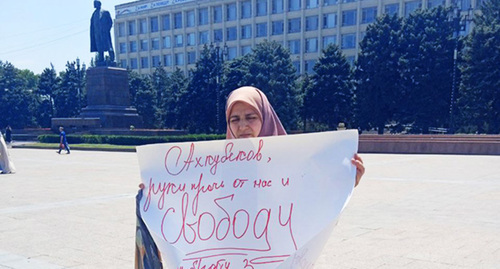 Ахкубеков,
руки прочь от нас и
Свободу